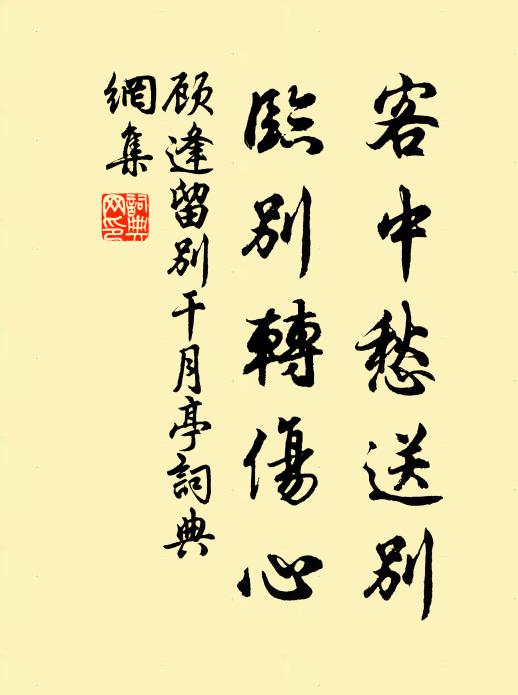 客中愁送别
臨别轉傷心
顧逢留别千月亭詞典
網集
詞典
网印